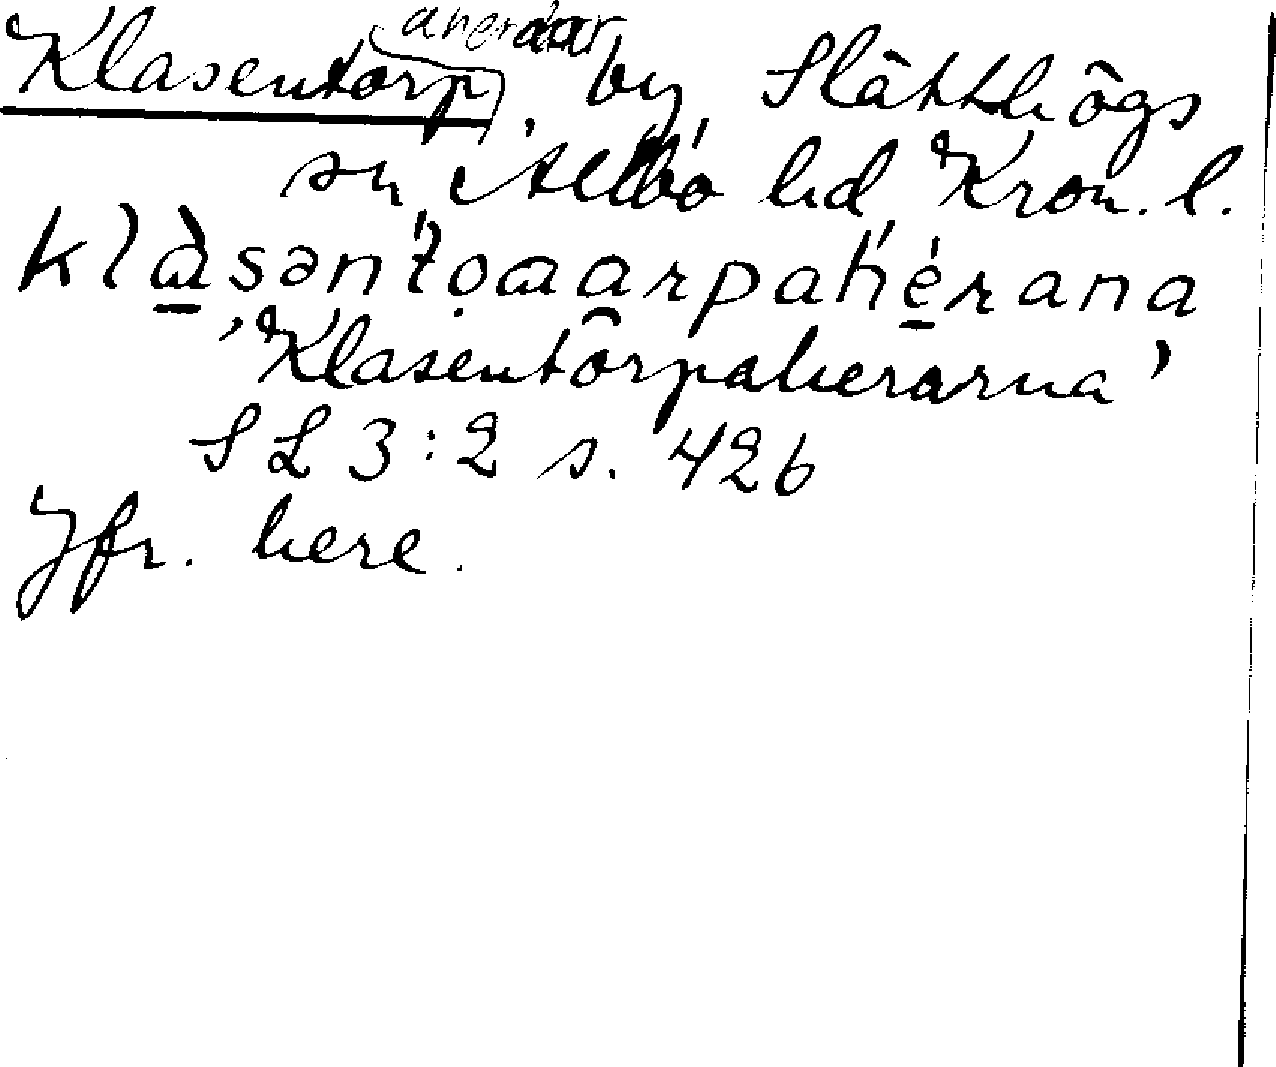 Klasentorp, by Slätthögs
sn Allbo hd Kron. l.
'Klasentorpaherarna'
SL 3:2 s. 426
Jfr. here.